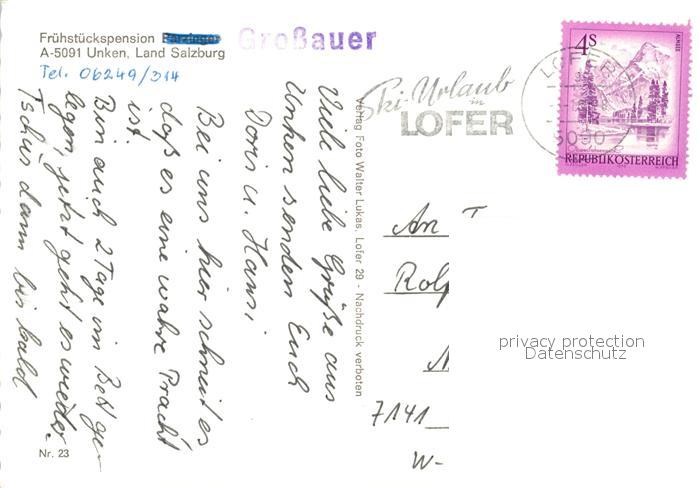 Frühstückspension Großauer
A-5091 Unken, Land Salzburg
Tel. 06249/314
Viele liebe Grüße aus
Unken senden Euch
Doris u. Hansi
Bei uns hier schneit es
daß es eine wahre Pracht
ist.
Bin auch 2 Tage im Bett ge-
legen, jetzt geht es wieder.
Tschüs dann bis bald
Nr. 23
Verlag Foto Walter Lukas, Lofer 29 - Nachdruck verboten
Ski-Urlaub
in
LOFER
LOFER
5090
4S
ALMSEE
REPUBLIK ÖSTERREICH
An
Rol
7141
W-
privacy protection
Datenschutz